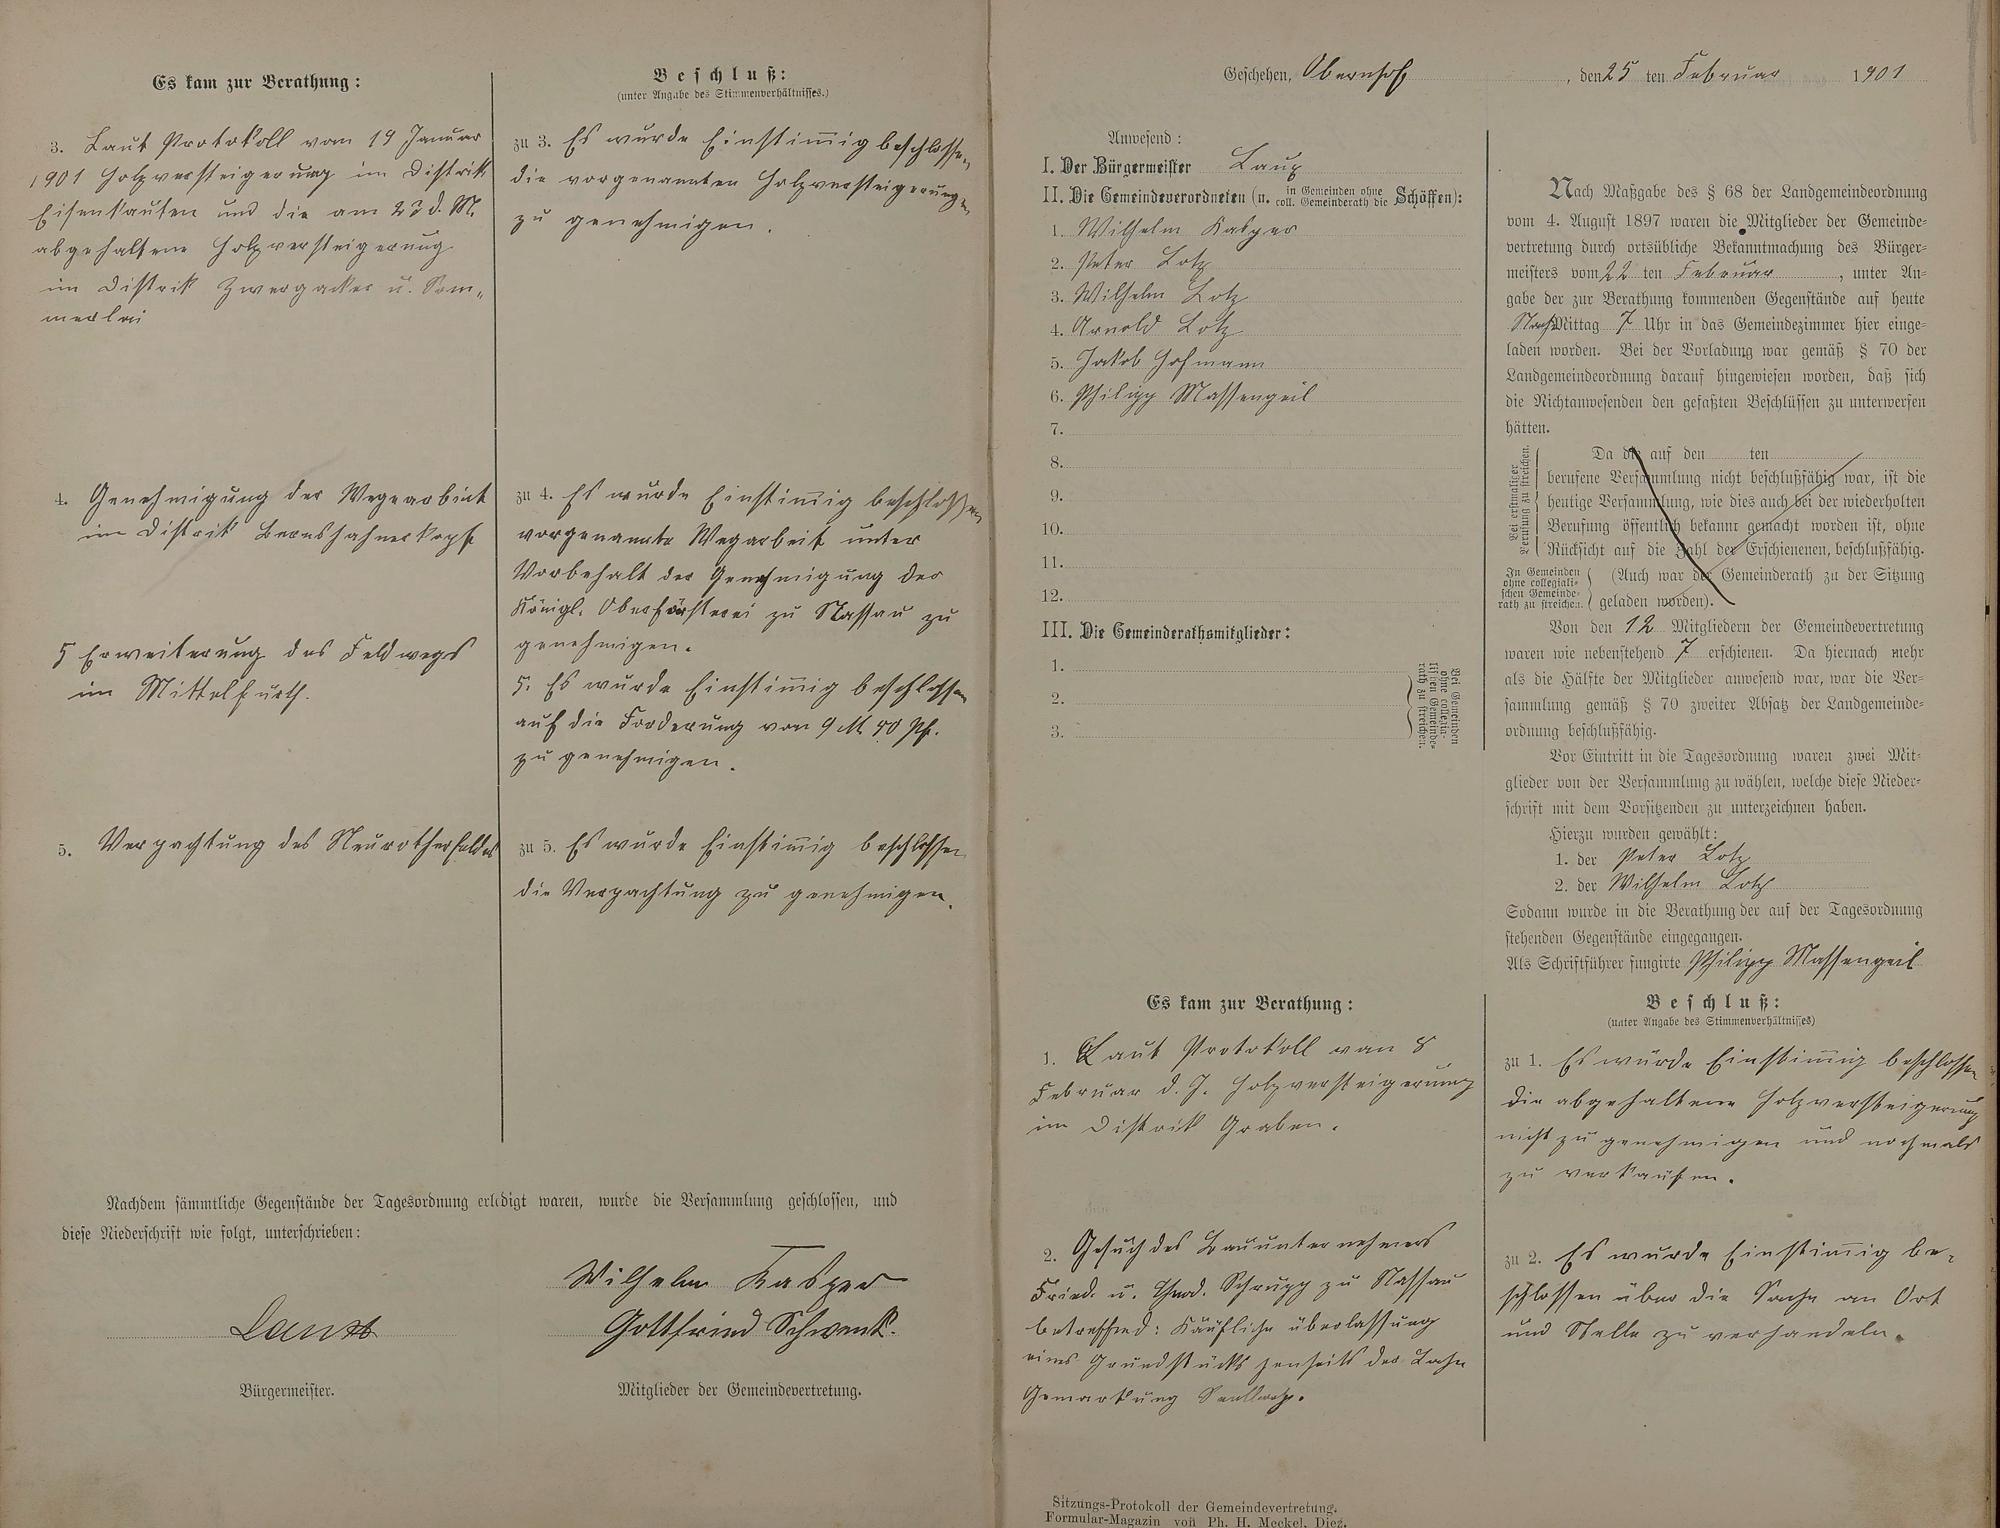 Es kam zur Berathung:
3. Laut Protokoll vom 19 Januar
1901 Holzversteigerung im Distrik
Eisenkauten und die am 23 d. M.
abgehaltene Holzversteigerung
im Distrik Zwergacker u. Som-
merlei
4. Genehmigung der Wegearbeit
im Distrik Bernshahnerkopf
5 Erweiterung des Feldwegs
im Mittelfurth.
5. Verpachtung des Neurotherfeldes
Beschluß:
(unter Angabe des Stimmenverhältnisses.)
zu 3. Es wurde Einstimig beschlossen
die vorgenannten Holzversteigerungen
zu genehmigen.
zu 4. Es wurde Einstimig beschlossen
vorgenannte Wegarbeit unter
Vorbehalt der Genehmigung der
Königl. Oberförsterei zu Nassau zu
genehmigen.
5. Es wurde Einstimig beschlossen
auf die Forderung von 9 M 40 Pf.
zu genehmigen.
zu 5. Es wurde Einstimig beschlossen
die Verpachtung zu genehmigen.
Nachdem sämmtliche Gegenstände der Tagesordnung erledigt waren, wurde die Versammlung geschlossen, und
diese Niederschrift wie folgt, unterschrieben:
Wilhelm Kasper
Gottfried Schwenk.
Bürgermeister.
Mitglieder der Gemeindevertretung.
Geschehen, Obernhof, den 25 ten Februar 1901
Anwesend:
I. Der Bürgermeister
II. Die Gemeindeverordneten (u. in Gemeinden ohne coll. Gemeinderath die Schöffen):
1. Wilhelm Kasper
2. Peter Lotz
3. Wilhelm Lotz
4. Arnold Lotz
5. Jakob Hofmann
6. Philipp Massengeil
7.
8.
9.
10.
11.
12.
III. Die Gemeinderathsmitglieder:
1.
2.
3.
Bei Gemeinden
ohne collegia-
lischen Gemeinde-
rath zu streichen.
Nach Maßgabe des § 68 der Landgemeindeordnung
vom 4. August 1897 waren die Mitglieder der Gemeinde-
vertretung durch ortsübliche Bekanntmachung des Bürger-
meisters vom 22 ten Februar, unter An-
gabe der zur Berathung kommenden Gegenstände auf heute
Nach Mittag 7 Uhr in das Gemeindezimmer hier einge-
laden worden. Bei der Vorladung war gemäß § 70 der
Landgemeindeordnung darauf hingewiesen worden, daß sich
die Nichtanwesenden den gefaßten Beschlüssen zu unterwerfen
hätten.
Bei erstmaliger
Berufung zu streichen.
Da die auf den ten
berufene Versammlung nicht beschlußfähig war, ist die
heutige Versammlung, wie dies auch bei der wiederholten
Berufung öffentlich bekannt gemacht worden ist, ohne
Rücksicht auf die Zahl der Erschienenen, beschlußfähig.
In Gemeinden
ohne collegiali-
schen Gemeinde-
rath zu streichen.
(Auch war der Gemeinderath zu der Sitzung
geladen worden).
Von den 12 Mitgliedern der Gemeindevertretung
waren wie nebenstehend 7 erschienen. Da hiernach mehr
als die Hälfte der Mitglieder anwesend war, war die Ver-
sammlung gemäß § 70 zweiter Absatz der Landgemeinde-
ordnung beschlußfähig.
Vor Eintritt in die Tagesordnung waren zwei Mit-
glieder von der Versammlung zu wählen, welche diese Nieder-
schrift mit dem Vorsitzenden zu unterzeichnen haben.
Hierzu wurden gewählt:
1. der Peter Lotz
2. der Wilhelm Lotz
Sodann wurde in die Berathung der auf der Tagesordnung
stehenden Gegenstände eingegangen.
Als Schriftführer fungirte Philipp Massengeil
Es kam zur Berathung:
1. Laut Protokoll von 8
Februar d. J. Holzversteigerung
im Distrik Graben.
2. Gesuch des Bauunternehmers
Fried. u. Theod. Schrupp zu Nassau
betreffend: Käufliche überlassung
eines Grundstücks jenseits der Lahn
Gemarkung
Beschluß:
(unter Angabe des Stimmenverhältnisses)
zu 1. Es wurde Einstimig beschlossen
die abgehaltene Holzversteigerung
nicht zu genehmigen und nochmals
zu verkaufen.
zu 2. Es wurde Einstimig be-
schlossen über die Sache an Ort
und Stelle zu verhandeln.
Sitzungs-Protokoll der Gemeindevertretung.
Formular-Magazin von Ph. H. Meckel, Diez.